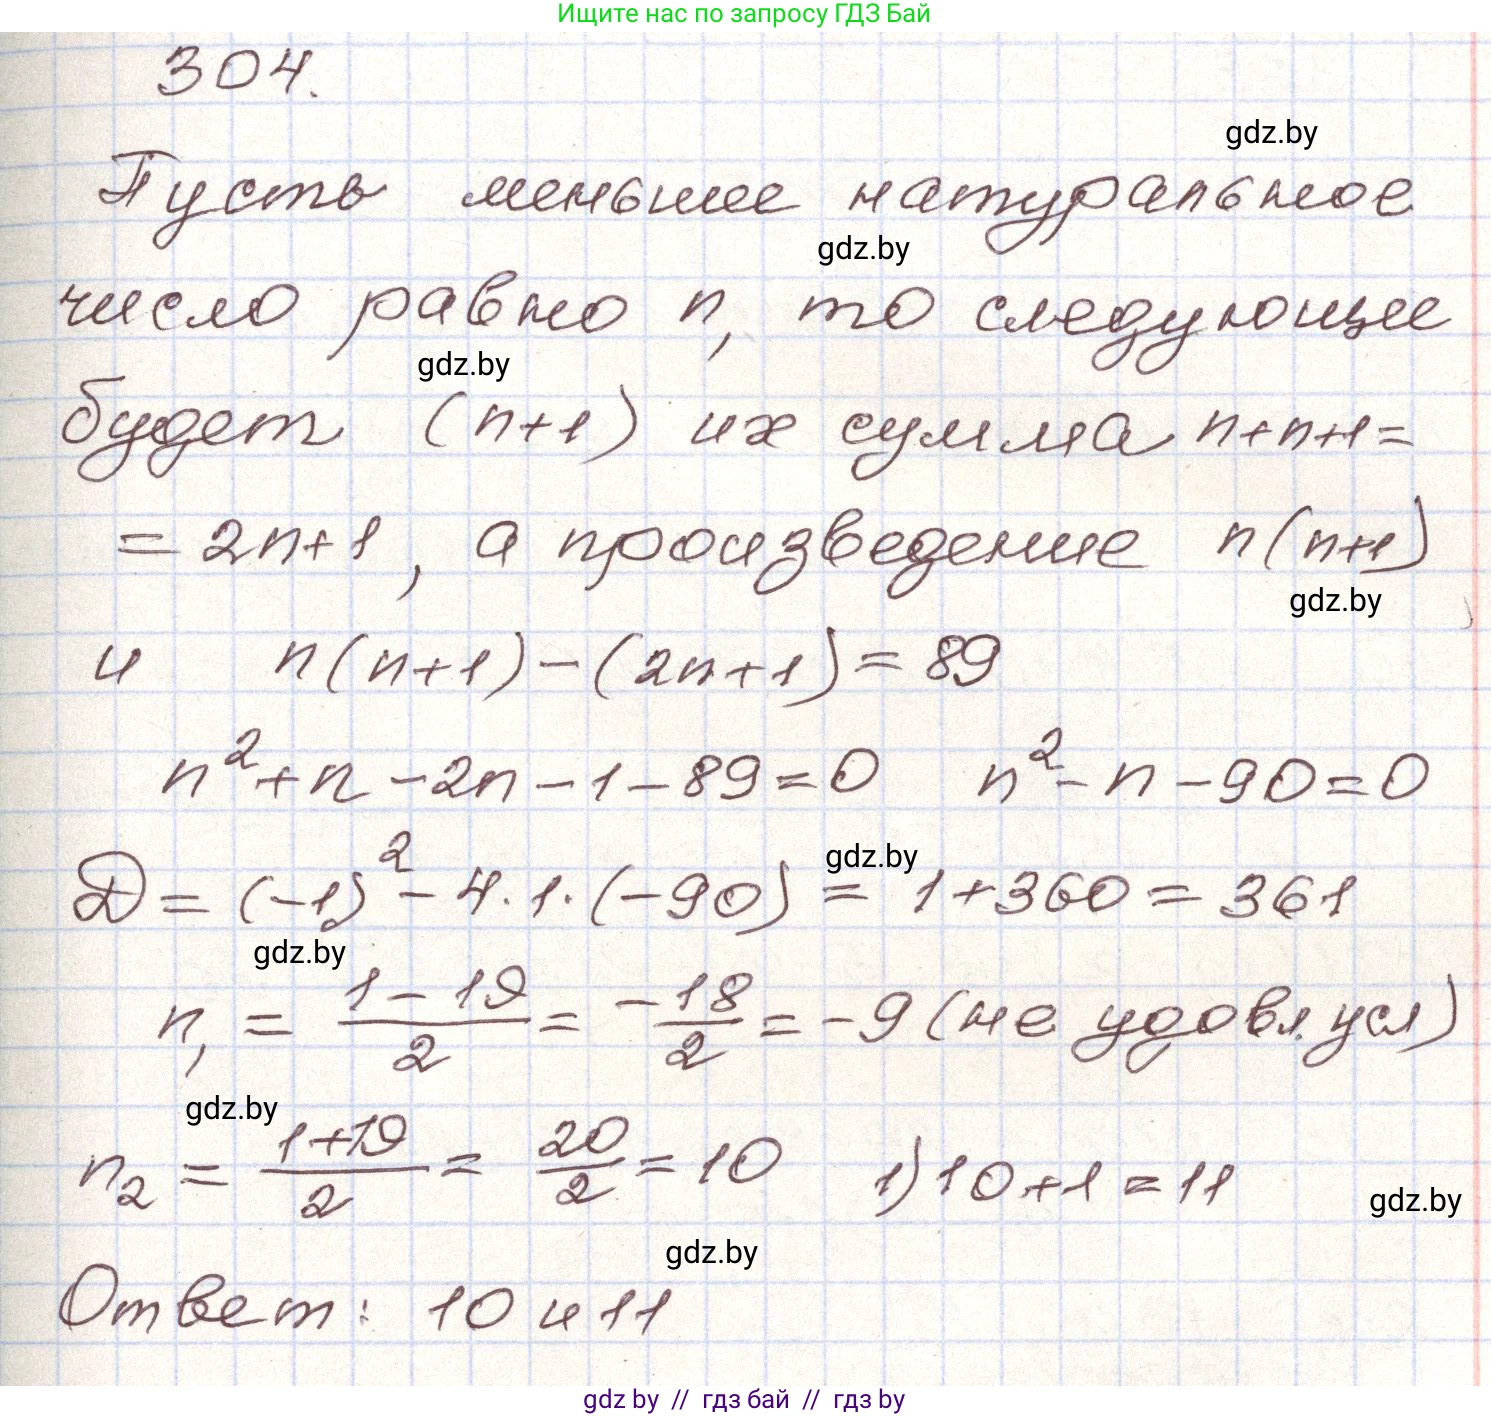 Ищите нас по запросу ГДЗ Бай
304.
gdz.by
Пусть меньшее натуральное
gdz.by
число равно n, то следующее
gdz.by
будет (n+1) их сумма n+n+1=
=2n+1, а произведение n(n+1)
gdz.by
и n(n+1)-(2n+1)=89
n²+n-2n-1-89=0 n²-n-90=0
gdz.by
D=(-1)²-4·1·(-90)=1+360=361
gdz.by
n₁ = (1-19)/2 = -18/2 = -9 (не удовл. усл)
gdz.by
n₂ = (1+19)/2 = 20/2 = 10 1) 10+1=11
gdz.by
gdz.by
Ответ: 10 и 11
gdz.by // гдз бай // гдз by